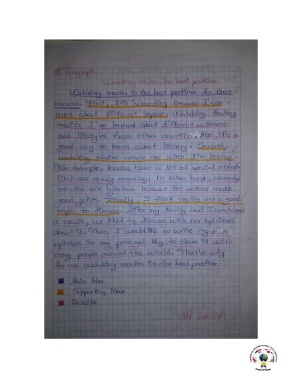 Paragraph.
Watching movies, the best pastime
Watching movies is the best pastime for three
reasons. First, it's interesting because I can
learn about different topics. Watching
movies I learned about different cultures
and lifestyles from other countries. Also, it's a
good way to learn about history. Second,
watching movies me while I'm
For example, movies have a lot of special effects
that are really amazing. In other hand, comedy
movies are because the actors make
good jokes. Finally, I think movies are a good
topic to discuss. After my family and I watched
a movie, we like to discuss with our opinions
about it. Then, I would like to write my own
opinion in my personal blog to share it with
many people around the world. That's why
for me watching movies is the best pastime.
Main Idea
Supporting Ideas
Details